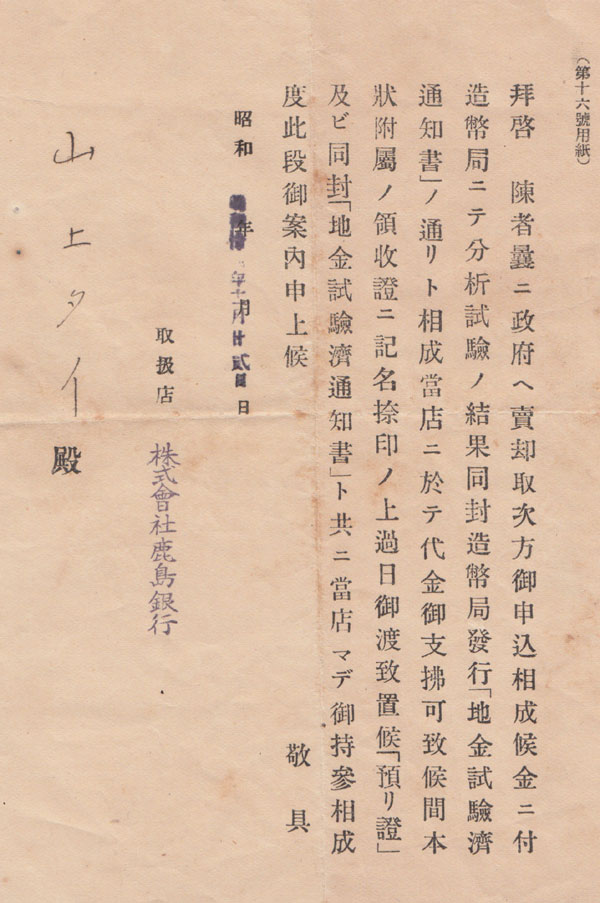 （第十六號用紙）
拜啓　陳者曩ニ政府ヘ賣却取次方御申込相成候金ニ付
造幣局ニテ分析試驗ノ結果同封造幣局發行「地金試驗濟
通知書」ノ通リト相成當店ニ於テ代金御支拂可致候間本
狀附屬ノ領收證ニ記名捺印ノ上過日御渡致置候「預リ證」
及ビ同封「地金試驗濟通知書」ト共ニ當店マデ御持參相成
度此段御案內申上候
敬具
昭和　年　月　日
年　月廿貳日
取扱店
株式會社鹿島銀行
山上タイ殿